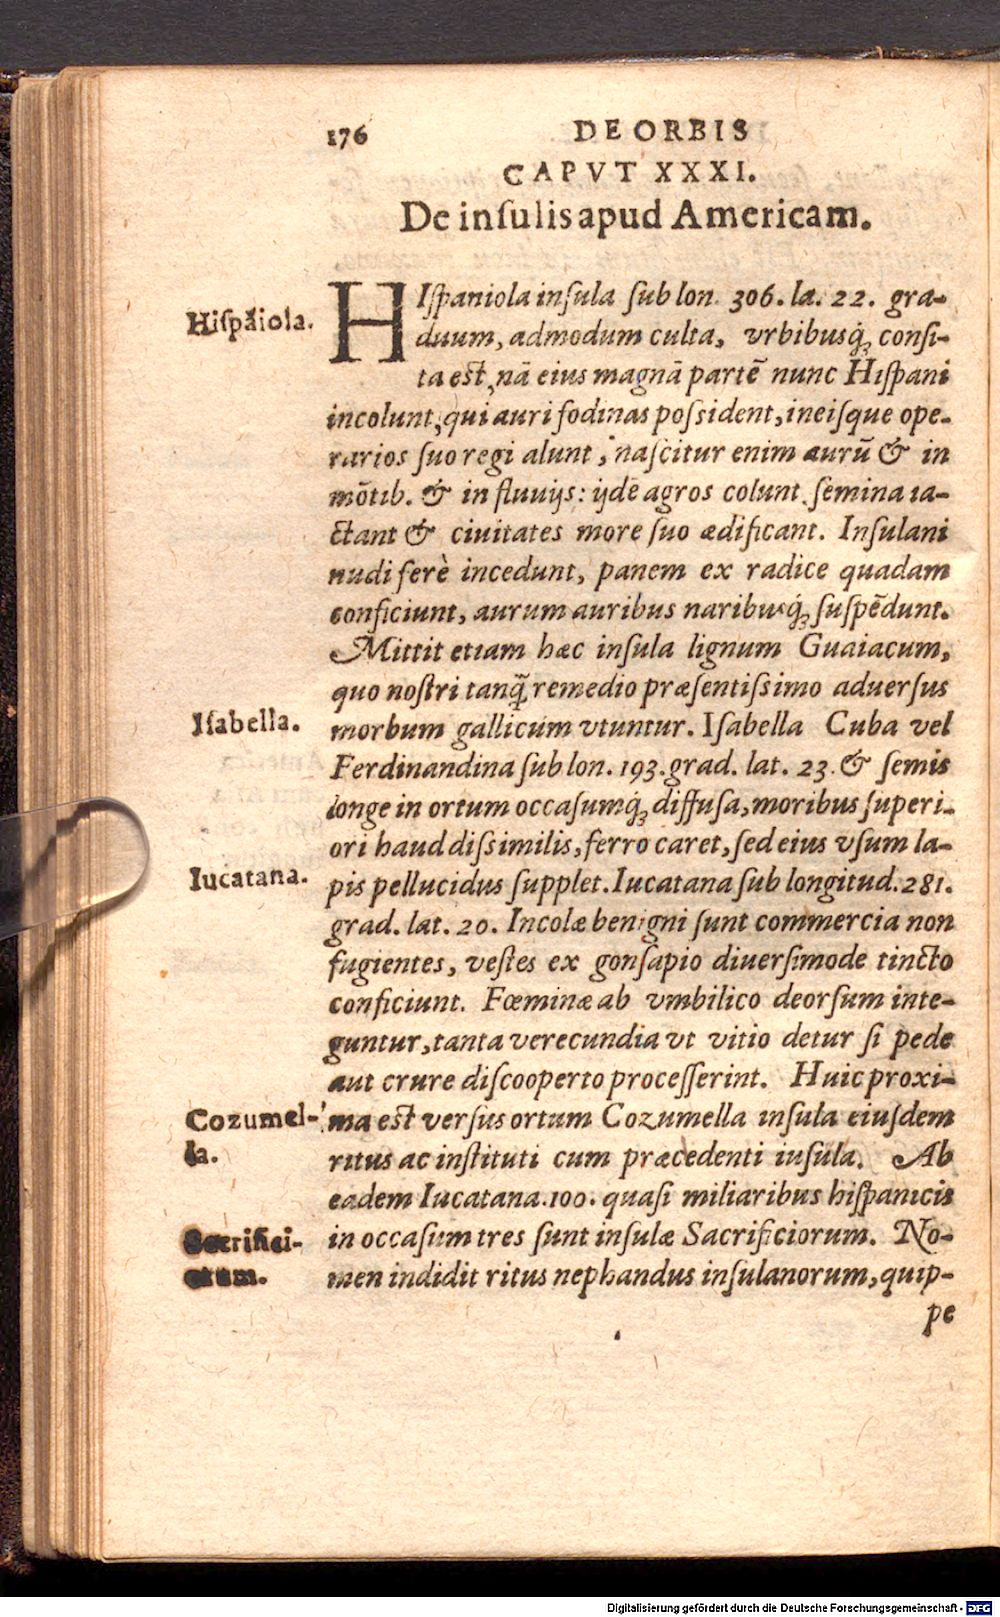 176 DE ORBIS
CAPVT XXXI.
De inſulis apud Americam.
Hiſpāiola.
HIſpaniola inſula ſub lon. 306. la. 22. gra-
duum, admodum culta, vrbibusq́; conſi-
ta est, nā eius magnā partē nunc Hiſpani
incolunt, qui auri fodinas poſsident, in eiſque ope-
rarios ſuo regi alunt, naſcitur enim aurū & in
mōtib. & in fluuijs: ijdē agros colunt ſemina ia-
ctant & ciuitates more ſuo ædificant. Inſulani
nudi ferè incedunt, panem ex radice quadam
conficiunt, aurum auribus naribusq́; ſuſpēdunt.
Mittit etiam hæc inſula lignum Guaiacum,
quo noſtri tanq̃ remedio præſentiſsimo aduerſus
Iſabella.
morbum gallicum vtuntur. Iſabella Cuba vel
Ferdinandina ſub lon. 193. grad. lat. 23. & ſemis
longe in ortum occaſumq́; diffuſa, moribus ſuperi-
ori haud diſsimilis, ferro caret, ſed eius vſum la-
Iucatana.
pis pellucidus ſupplet. Iucatana ſub longitud. 281.
grad. lat. 20. Incolæ benigni ſunt commercia non
fugientes, veſtes ex gonſapio diuerſimode tincto
conficiunt. Fœminæ ab vmbilico deorſum inte-
guntur, tanta verecundia vt vitio detur ſi pede
aut crure diſcooperto proceſſerint. Huic proxi-
Cozumel-
la.
ma est verſus ortum Cozumella inſula eiuſdem
ritus ac inſtituti cum præcedenti iuſula. Ab
eadem Iucatana. 100. quaſi miliaribus hiſpanicis
Sacrifici-
orum.
in occaſum tres ſunt inſulæ Sacrificiorum. No-
men indidit ritus nephandus inſulanorum, quip-
pe
Digitalisierung gefördert durch die Deutsche Forschungsgemeinschaft - DFG